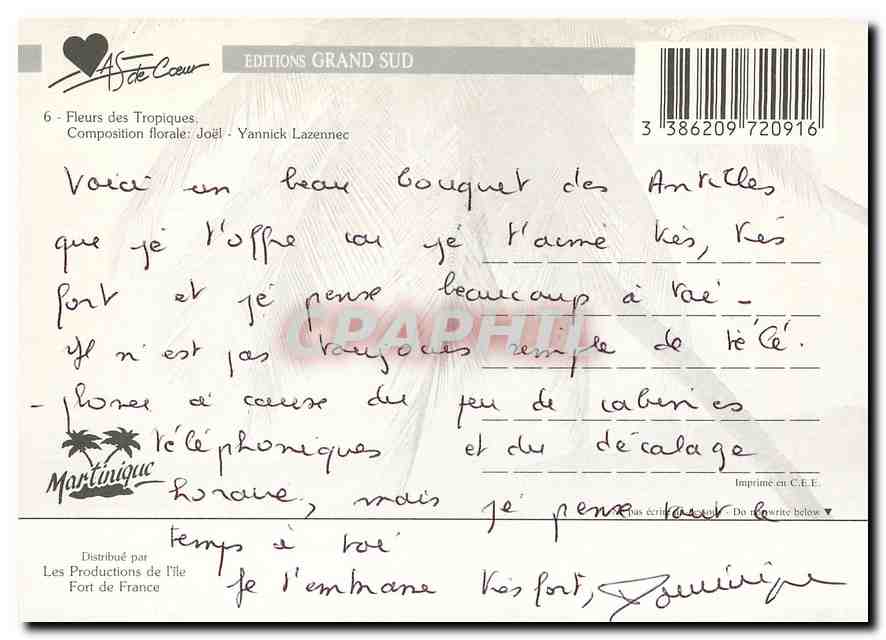 As de Cœur
EDITIONS GRAND SUD
3 386209 720916
6 - Fleurs des Tropiques.
Composition florale: Joël - Yannick Lazennec
Voici un beau bouquet des Antilles
que je t'offre car je t'aime très, très
fort et je pense beaucoup à toi -
CPAPHIL
Il n'est pas toujours simple de télé.
- phoner à cause du peu de cabines
téléphoniques et du décalage
Martinique
Imprimé en C.E.E.
horaire, mais je pense tout le
pas écrire au-dessous - Do not write below ▼
temps à toi
Distribué par
Les Productions de l'île
Fort de France
Je t'embrasse très fort, Dominique